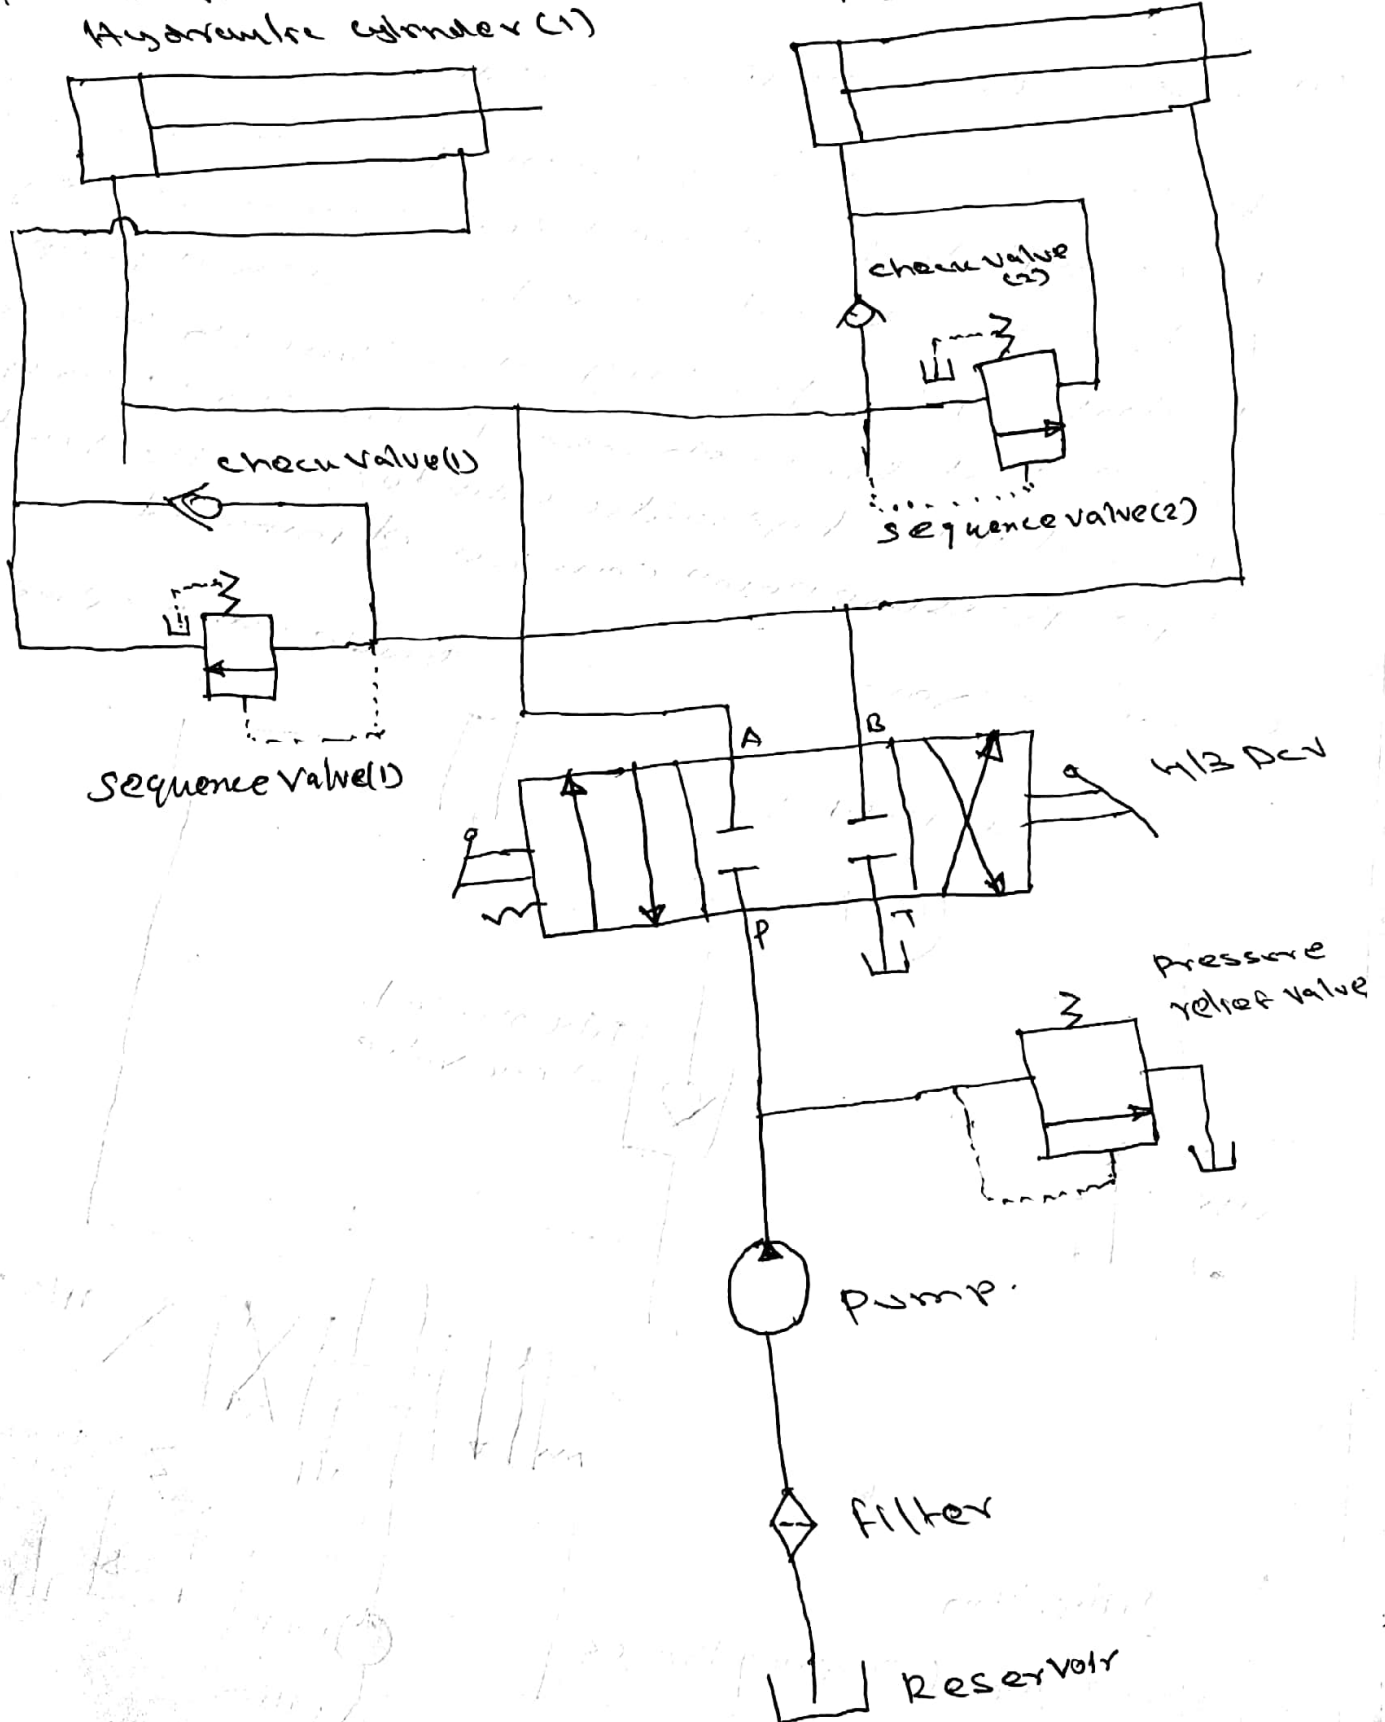 Hydraulic cylinder (1)
check valve
(2)
check valve(1)
sequence valve(2)
sequence valve(1)
A
B
4/3 DCV
P
T
pressure
relief valve
pump.
filter
Reservoir